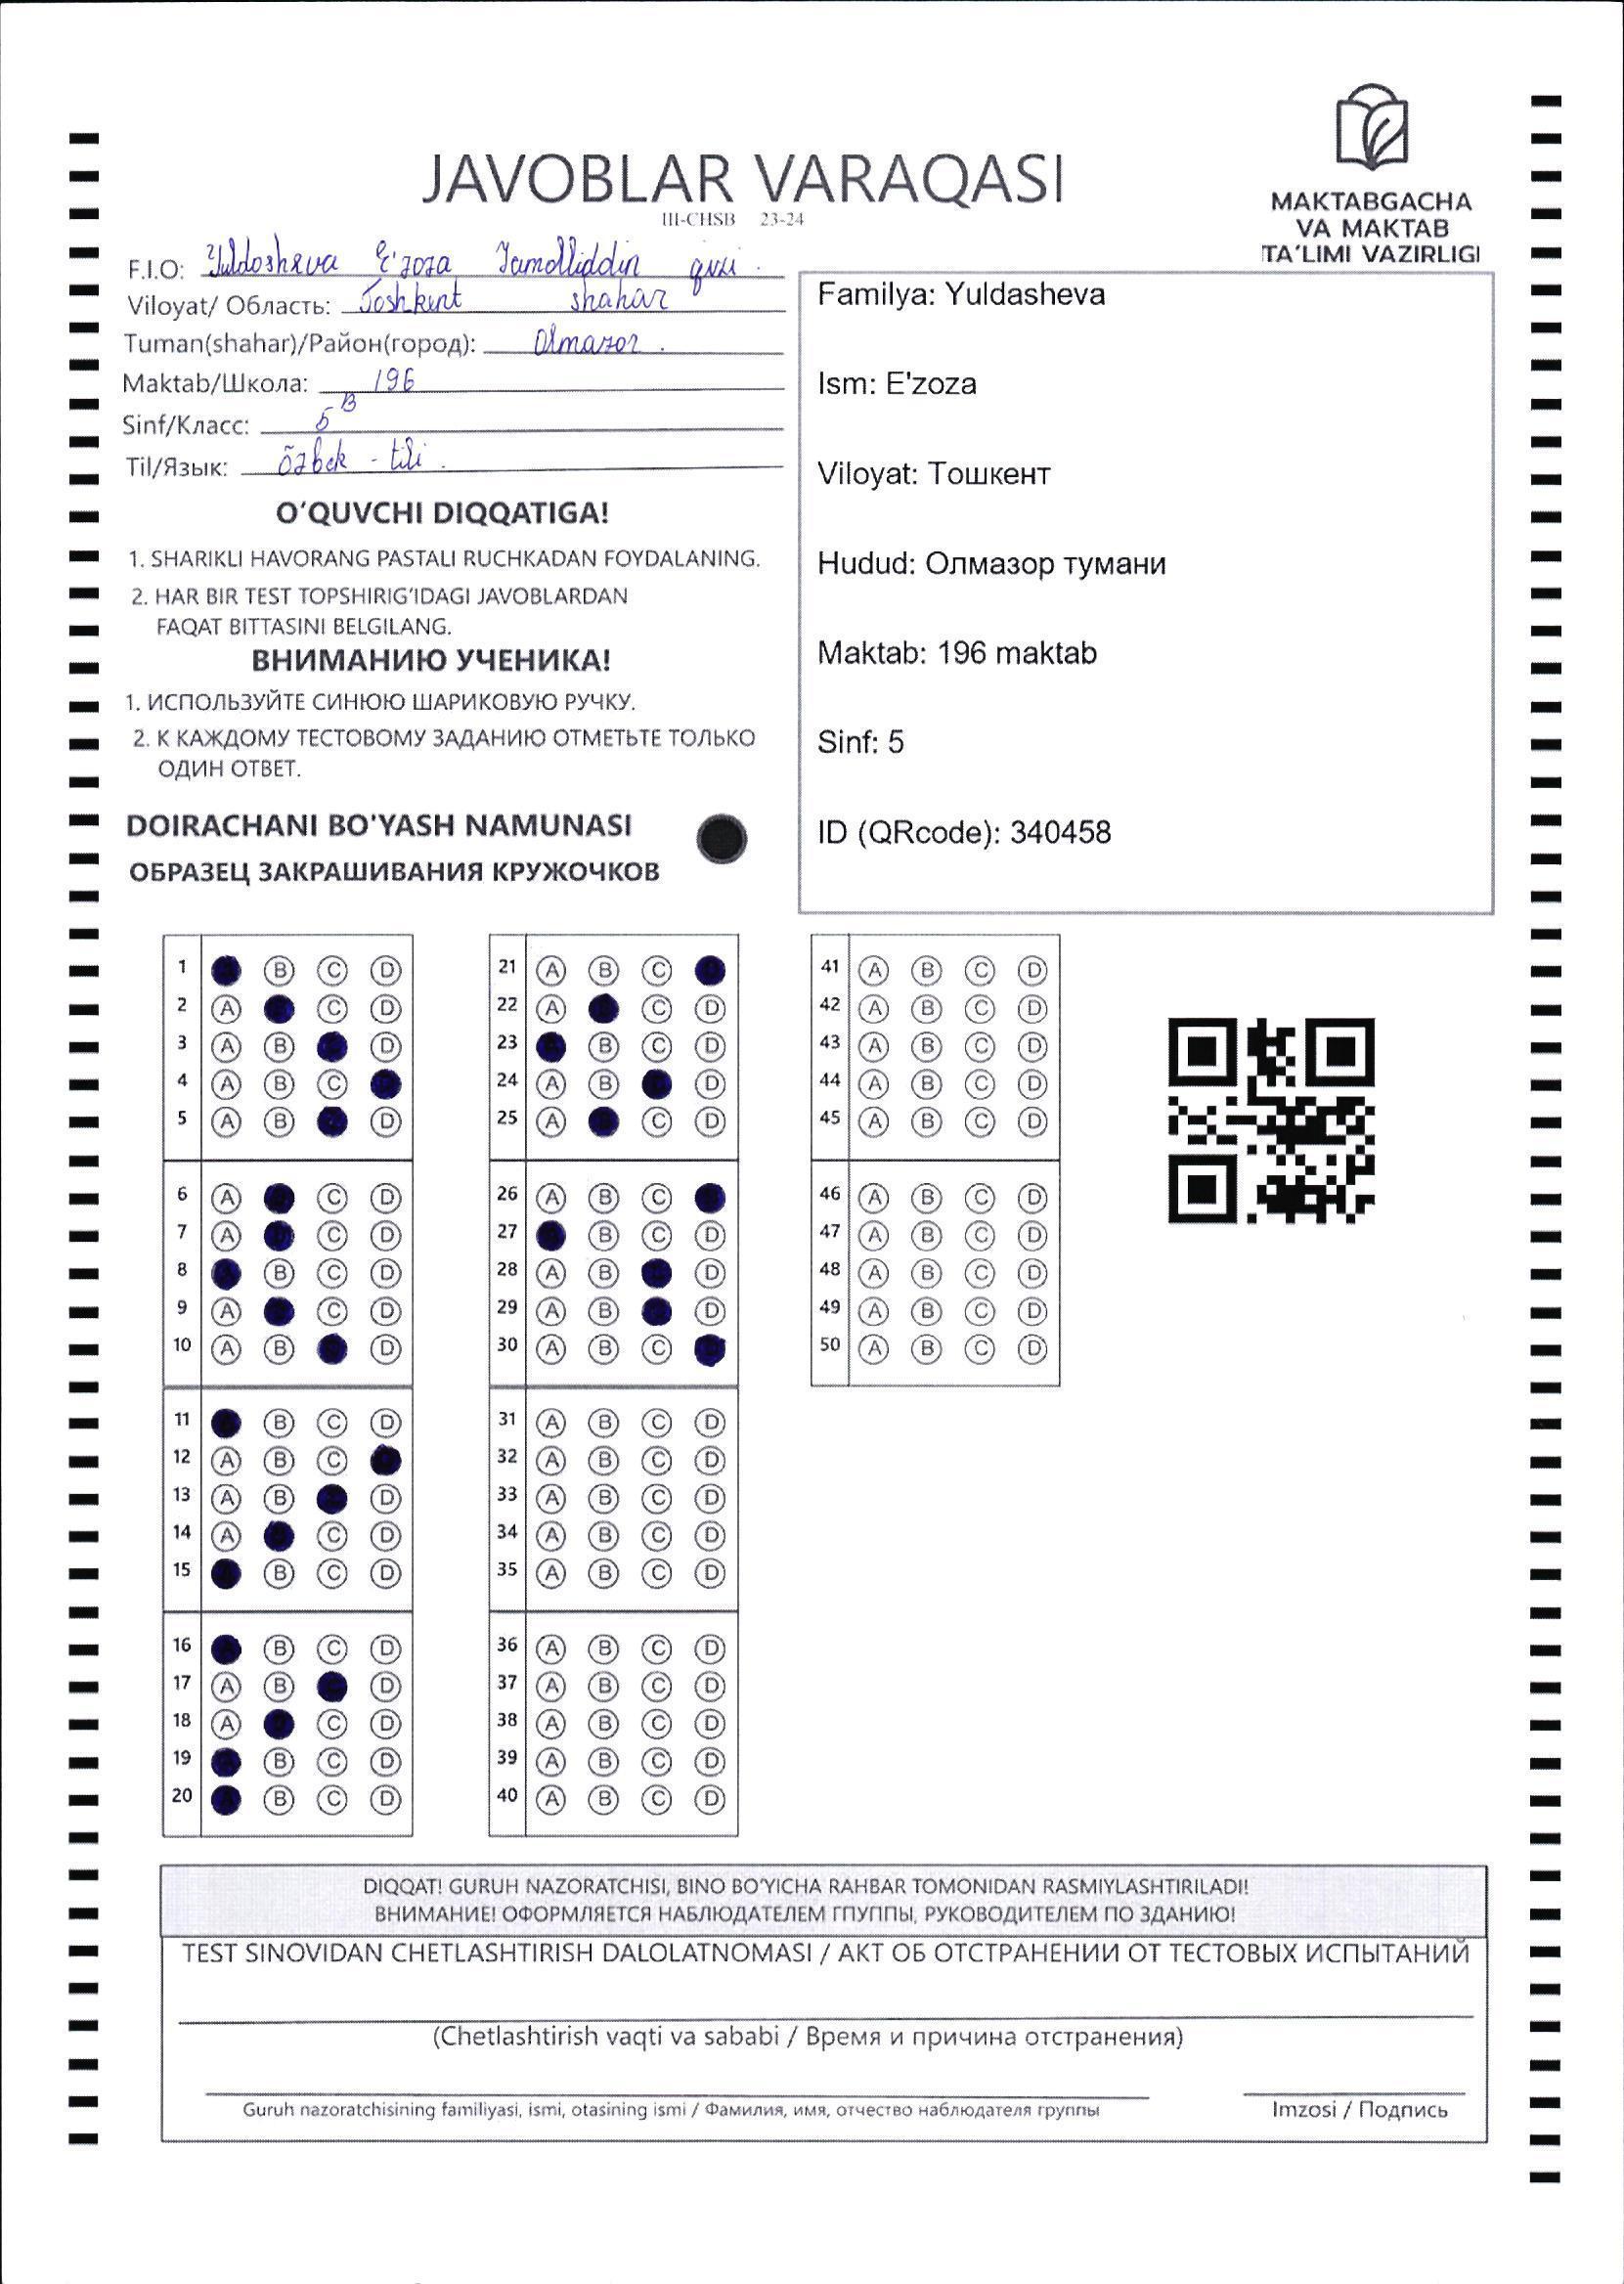 JAVOBLAR VARAQASI
III-CHSB 23-24
MAKTABGACHA
VA MAKTAB
TA'LIMI VAZIRLIGI
F.I.O: Yuldasheva E'zoza Jamolliddin qizi.
Viloyat/ Область: Toshkent shahar
Tuman(shahar)/Район(город): Olmazor.
Maktab/Школа: 196
Sinf/Класс: 5 B
Til/Язык: õzbek - tili.
O'QUVCHI DIQQATIGA!
1. SHARIKLI HAVORANG PASTALI RUCHKADAN FOYDALANING.
2. HAR BIR TEST TOPSHIRIG'IDAGI JAVOBLARDAN
FAQAT BITTASINI BELGILANG.
ВНИМАНИЮ УЧЕНИКА!
1. ИСПОЛЬЗУЙТЕ СИНЮЮ ШАРИКОВУЮ РУЧКУ.
2. К КАЖДОМУ ТЕСТОВОМУ ЗАДАНИЮ ОТМЕТЬТЕ ТОЛЬКО
ОДИН ОТВЕТ.
DOIRACHANI BO'YASH NAMUNASI
ОБРАЗЕЦ ЗАКРАШИВАНИЯ КРУЖОЧКОВ
Familya: Yuldasheva
Ism: E'zoza
Viloyat: Тошкент
Hudud: Олмазор тумани
Maktab: 196 maktab
Sinf: 5
ID (QRcode): 340458
1 B C D
2 A C D
3 A B D
4 A B C
5 A B D
6 A C D
7 A C D
8 B C D
9 A C D
10 A B D
11 B C D
12 A B C
13 A B D
14 A C D
15 B C D
16 B C D
17 A B D
18 A C D
19 B C D
20 B C D
21 A B C
22 A C D
23 B C D
24 A B D
25 A C D
26 A B C
27 B C D
28 A B D
29 A B D
30 A B C
31 A B C D
32 A B C D
33 A B C D
34 A B C D
35 A B C D
36 A B C D
37 A B C D
38 A B C D
39 A B C D
40 A B C D
41 A B C D
42 A B C D
43 A B C D
44 A B C D
45 A B C D
46 A B C D
47 A B C D
48 A B C D
49 A B C D
50 A B C D
DIQQAT! GURUH NAZORATCHISI, BINO BO'YICHA RAHBAR TOMONIDAN RASMIYLASHTIRILADI!
ВНИМАНИЕ! ОФОРМЛЯЕТСЯ НАБЛЮДАТЕЛЕМ ГПУППЫ, РУКОВОДИТЕЛЕМ ПО ЗДАНИЮ!
TEST SINOVIDAN CHETLASHTIRISH DALOLATNOMASI / АКТ ОБ ОТСТРАНЕНИИ ОТ ТЕСТОВЫХ ИСПЫТАНИЙ
(Chetlashtirish vaqti va sababi / Время и причина отстранения)
Guruh nazoratchisining familiyasi, ismi, otasining ismi / Фамилия, имя, отчество наблюдателя группы
Imzosi / Подпись